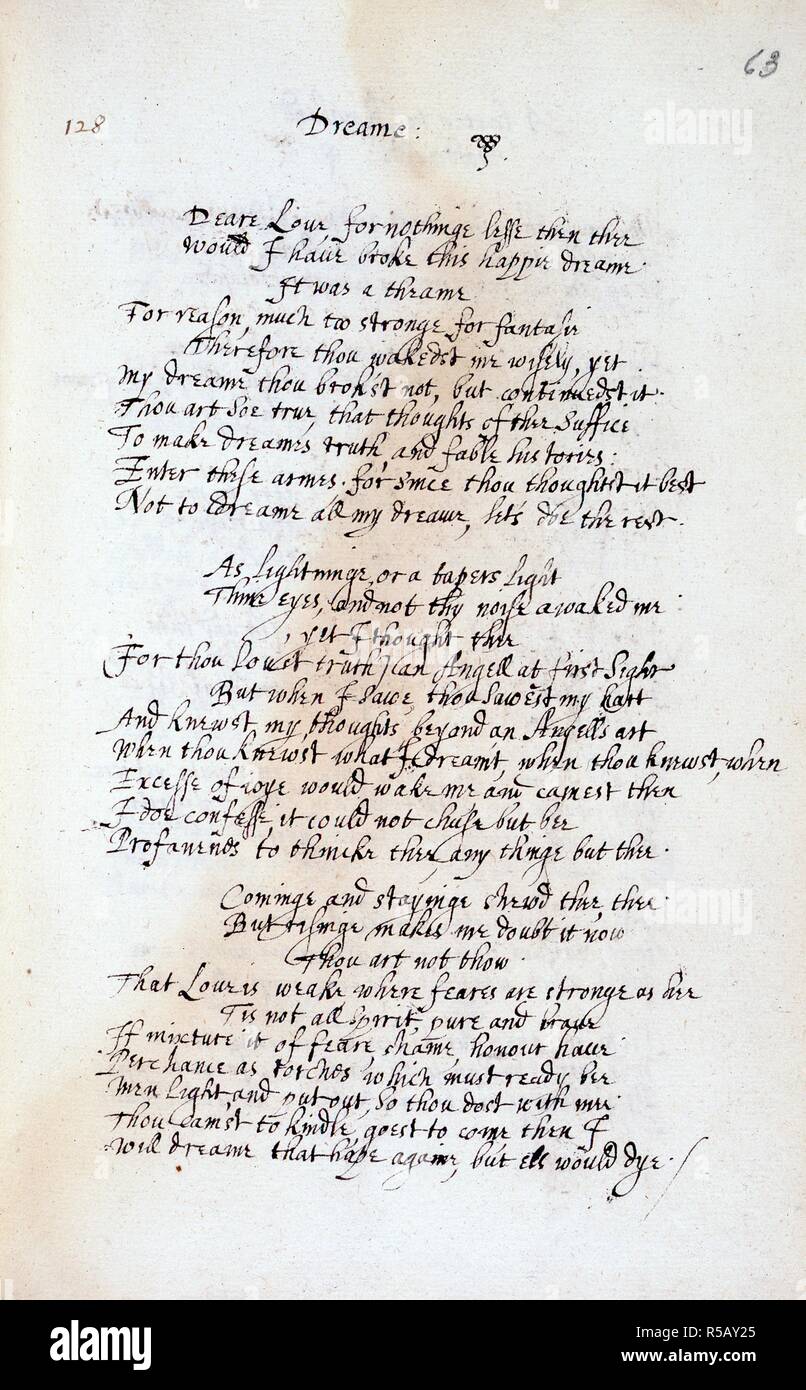 63
128
Dreame:
Deare Loue, for nothinge lesse then thee
would I haue broke this happie dreame.
It was a theame
For reason, much too stronge for fantasie
Therefore thou wakedst me wisely, yet
My dreame thou brok'st not, but continuedst it.
Thou art soe true, that thoughts of thee suffice
To make dreames truth, and fable histories:
Enter these armes. for since thou thoughtst it best
Not to dreame all my dreame, let's doe the rest.
As lightninge, or a tapers light
Thine eyes, and not thy noise awaked me
, yet I thought thee
(For thou louest truth) an Angell at first sight
But when I sawe, thou sawest my hart
And knewst my thoughts beyond an Angells art
When thou knewst what I dreamt, when thou knewst, when
Excesse of ioye would wake me and camest then
I doe confesse, it could not chuse but bee
Profanenes to thincke thee any thinge but thee.
Cominge and stayinge shewd thee, thee.
But risinge makes me doubt it now
Thou art not thow.
That Loue is weake where feares are stronge as hee
Tis not all spirit, pure and braue
If mixture it of feare, shame, honour haue.
Perchance as torches which must ready bee
Men light and put out, so thou dost with mee.
Thou cam'st to kindle, goest to come then I
will dreame that hope againe, but els would dye.
alamy
alamy
alamy
Image ID: R5AY25
www.alamy.com